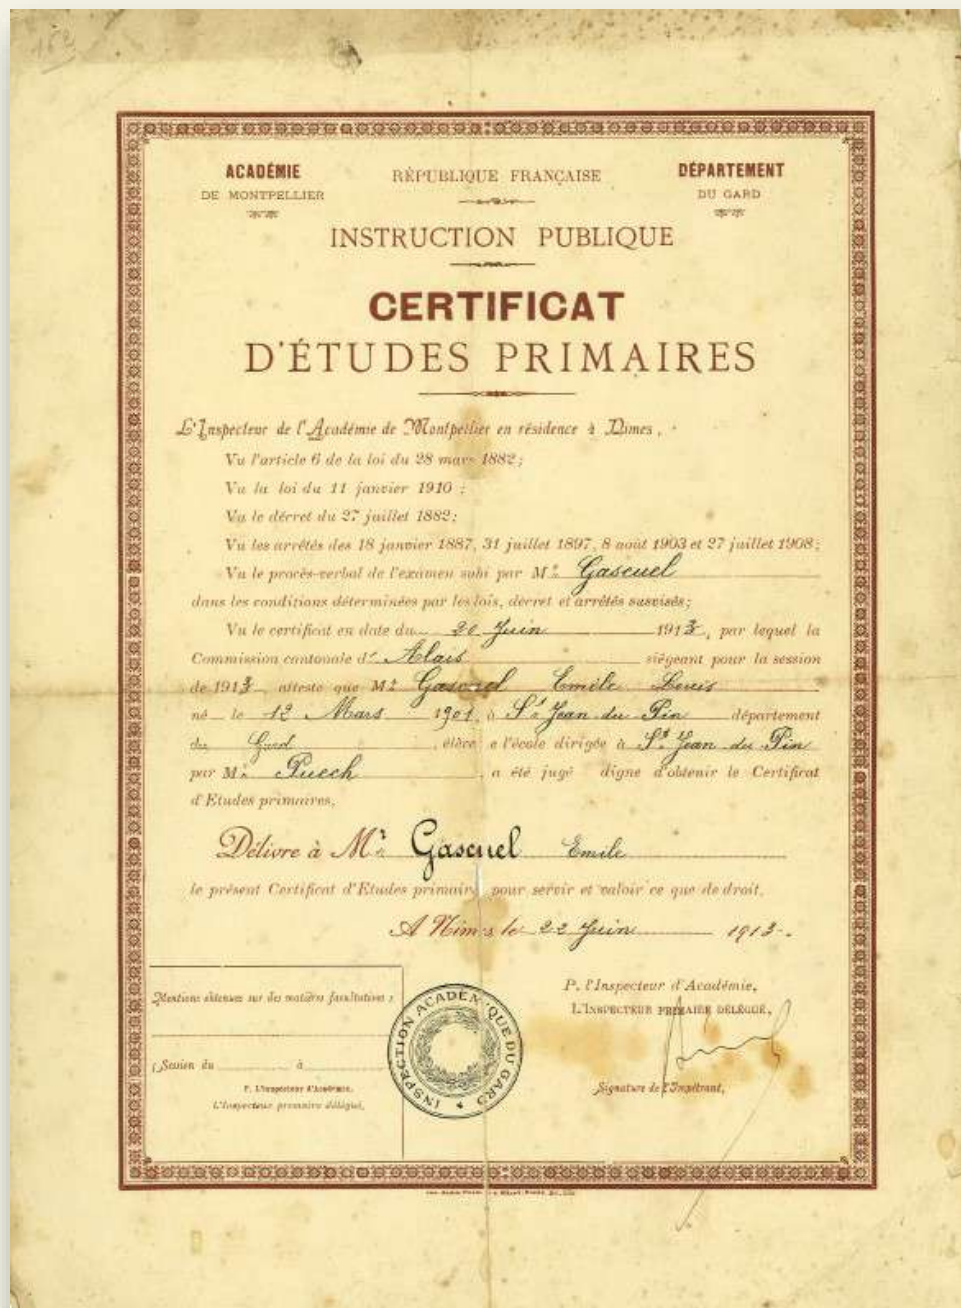 ACADÉMIE
DE MONTPELLIER
RÉPUBLIQUE FRANÇAISE
DÉPARTEMENT
DU GARD
INSTRUCTION PUBLIQUE
CERTIFICAT
D'ÉTUDES PRIMAIRES
L'Inspecteur de l'Académie de Montpellier en résidence à Nimes,
Vu l'article 6 de la loi du 28 mars 1882;
Vu la loi du 11 janvier 1910;
Vu le décret du 27 juillet 1882;
Vu les arrêtés des 18 janvier 1887, 31 juillet 1897, 8 août 1903 et 27 juillet 1908;
Vu le procès-verbal de l'examen subi par Mr Gascuel
dans les conditions déterminées par les lois, décret et arrêtés susvisés;
Vu le certificat en date du 20 Juin 1913, par lequel la
Commission cantonale d' Alais siégeant pour la session
de 1913 atteste que Mr Gascuel Emile Louis
né le 12 Mars 1901, à St Jean du Pin département
du Gard, élève e l'école dirigée à St Jean du Pin
par Mr Puech, a été jugé digne d'obtenir le Certificat
d'Etudes primaires,
Délivre à Mr Gascuel Emile
le présent Certificat d'Etudes primaires pour servir et valoir ce que de droit.
A Nimes le 22 Juin 1913.
Mentions obtenues sur des matières facultatives:
Session du à
P. L'Inspecteur d'Académie,
L'Inspecteur primaire délégué,
INSPECTION ACADÉMIQUE DU GARD
P. l'Inspecteur d'Académie,
L'INSPECTEUR PRIMAIRE DÉLÉGUÉ,
Signature de l'Impétrant,